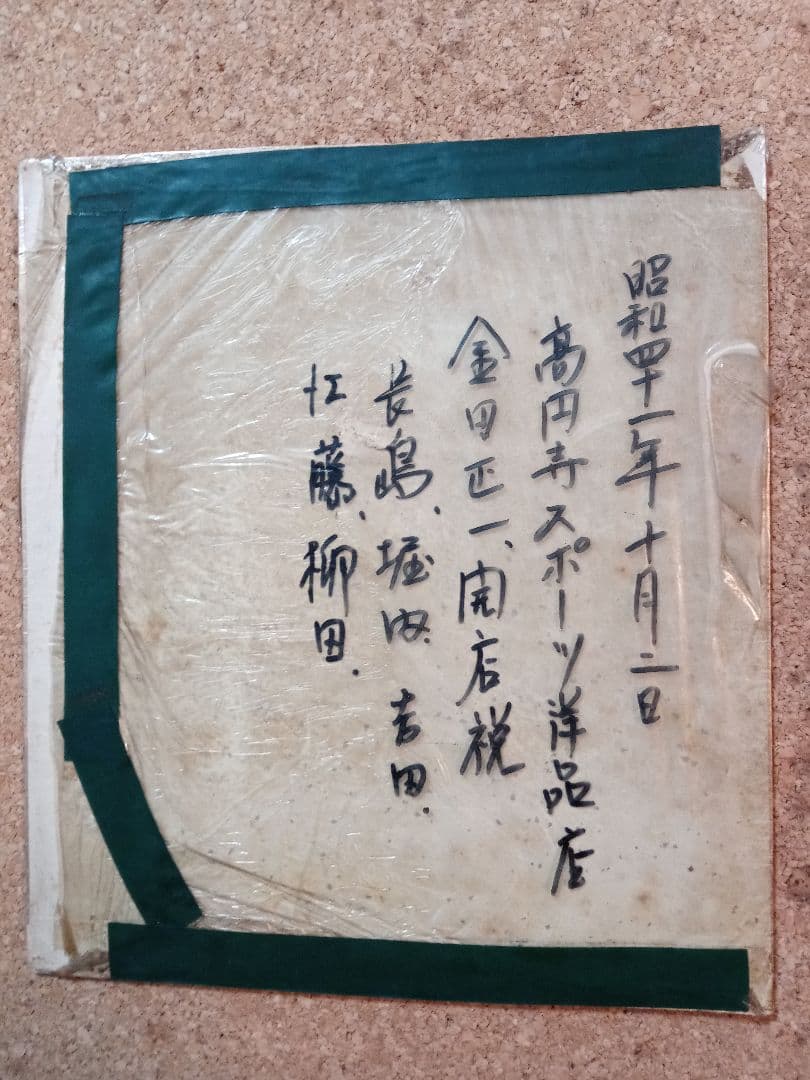 昭和四十一年十月二日
高円寺スポーツ洋品店
金田正一、開店祝
長嶋、堀内、吉田、
江藤、柳田、